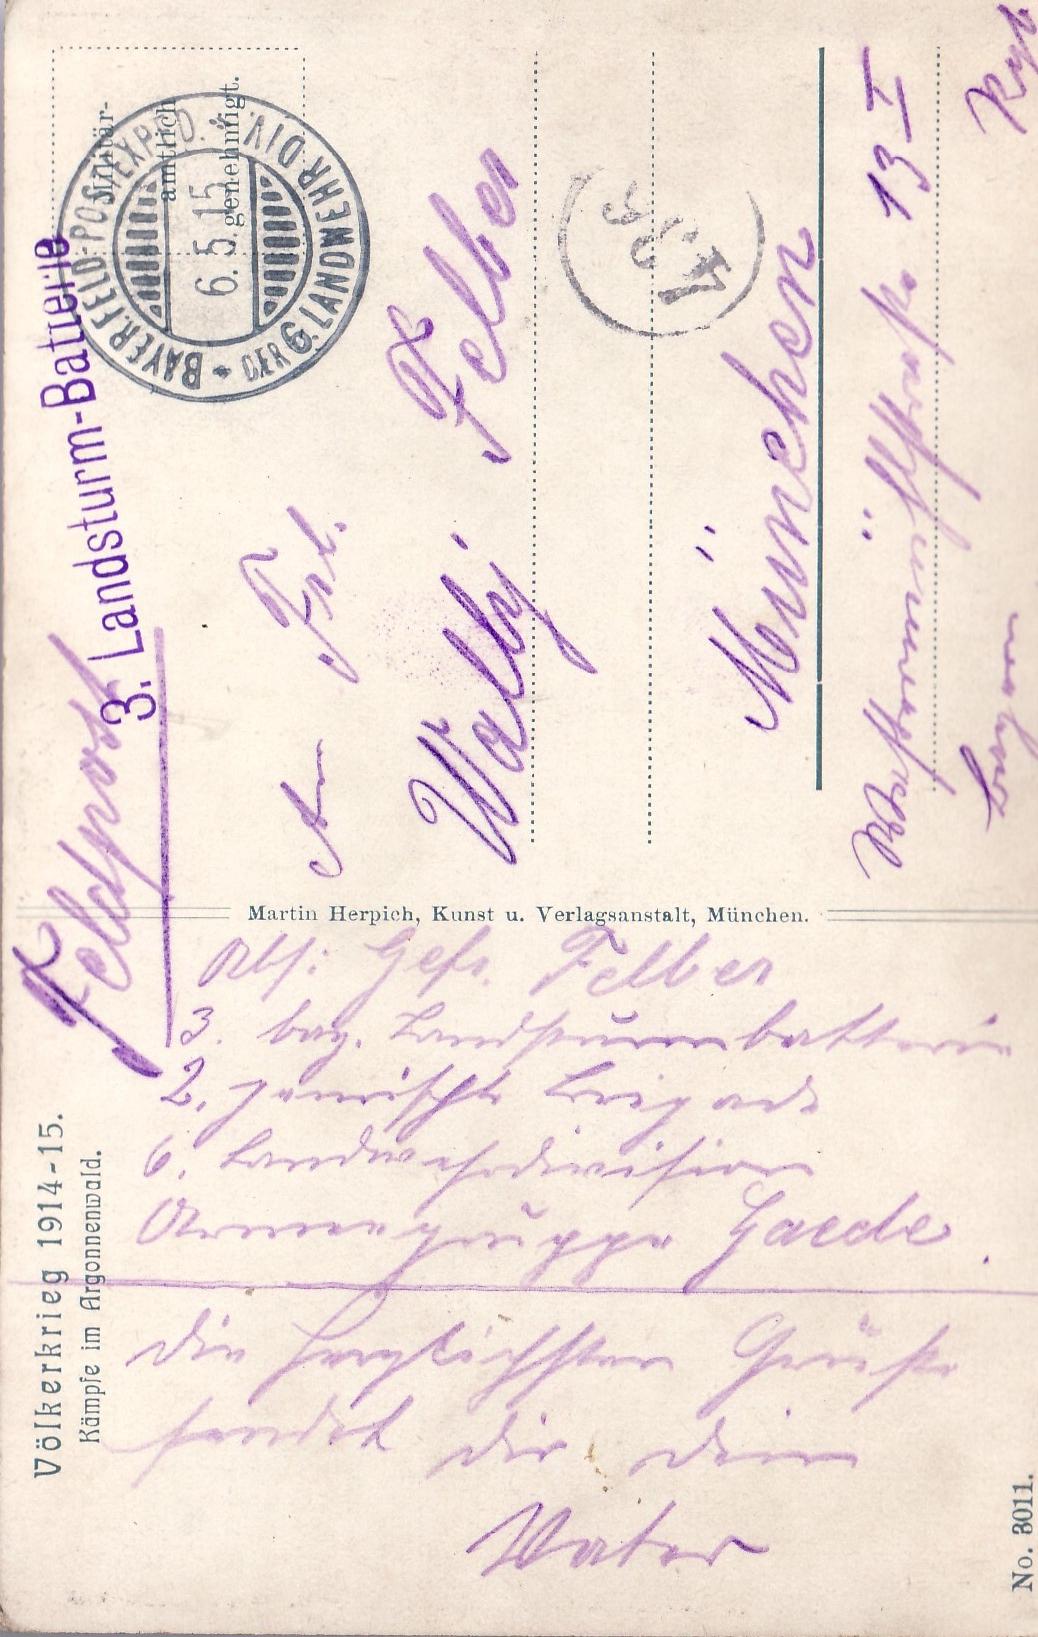 Feldpost
3. Landsturm-Batterie
Militär-
amtlich
genehmigt.
BAYER. FELD-POSTEXPED. * DER 6. LANDWEHR-DIV.
6. 5. 15
An Frl.
Wally Felber
München
13 I
Martin Herpich, Kunst u. Verlagsanstalt, München.
Abs: Gefr. Felber
3. bay. Landsturmbatterie
2. bayrische Brigade
6. Landwehrdivision
Armeegruppe Gaede.
Die herzlichsten Grüße
sendet dir dein
Vater
Völkerkrieg 1914-15.
Kämpfe im Argonnenwald.
No. 3011.